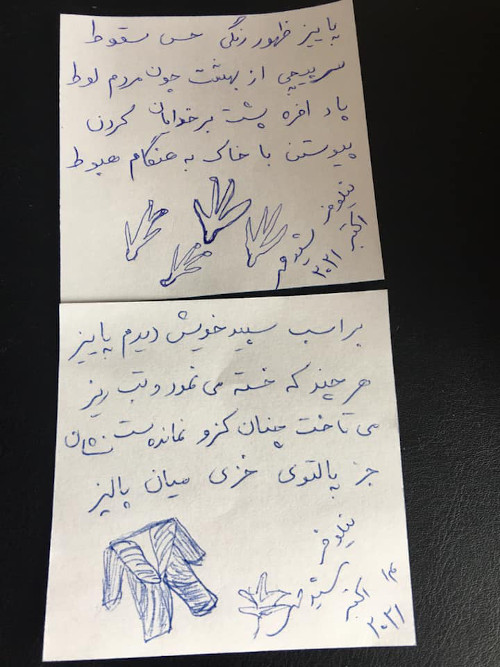 پاییز ظهور زندگی حس سقوط
سرپیچی از بهشت چون مردم لوط
پاد افره پشت بر خدایان کردن
پیوستن با خاک به هنگام هبوط
نیلوفر
شیدمهر
اکتبر
۲۰۲۱
بر اسب سپید خویش دیدم پاییز
هر چند که خسته می نمود و تب ریز
می تاخت چنان کزو نمانده ست نشان
جز پالتوی خزی میان پالیز
نیلوفر
شیدمهر
۱۳ اکتبر
۲۰۲۱